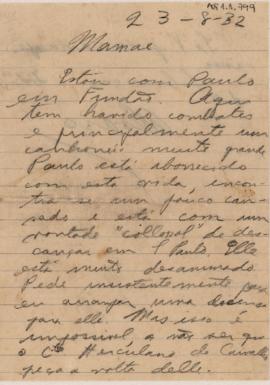 AP 1.1.799
23-8-32
Mamãe
Estou com Paulo
em Fundão. Aqui
tem havido combates
e principalmente um
canhoneio muito grande
Paulo está aborrecido
com esta vida, encon
tra se um pouco can
sado e está com uma
vontade "collossal" de des
cançar em S. Paulo. Elle
está muito desanimado
Pede insistentemente para
eu arranjar uma dispensa
para elle. Mas isso é
impossivel, a não ser que
o Cte Herculano de Carvalho
peça a volta delle.